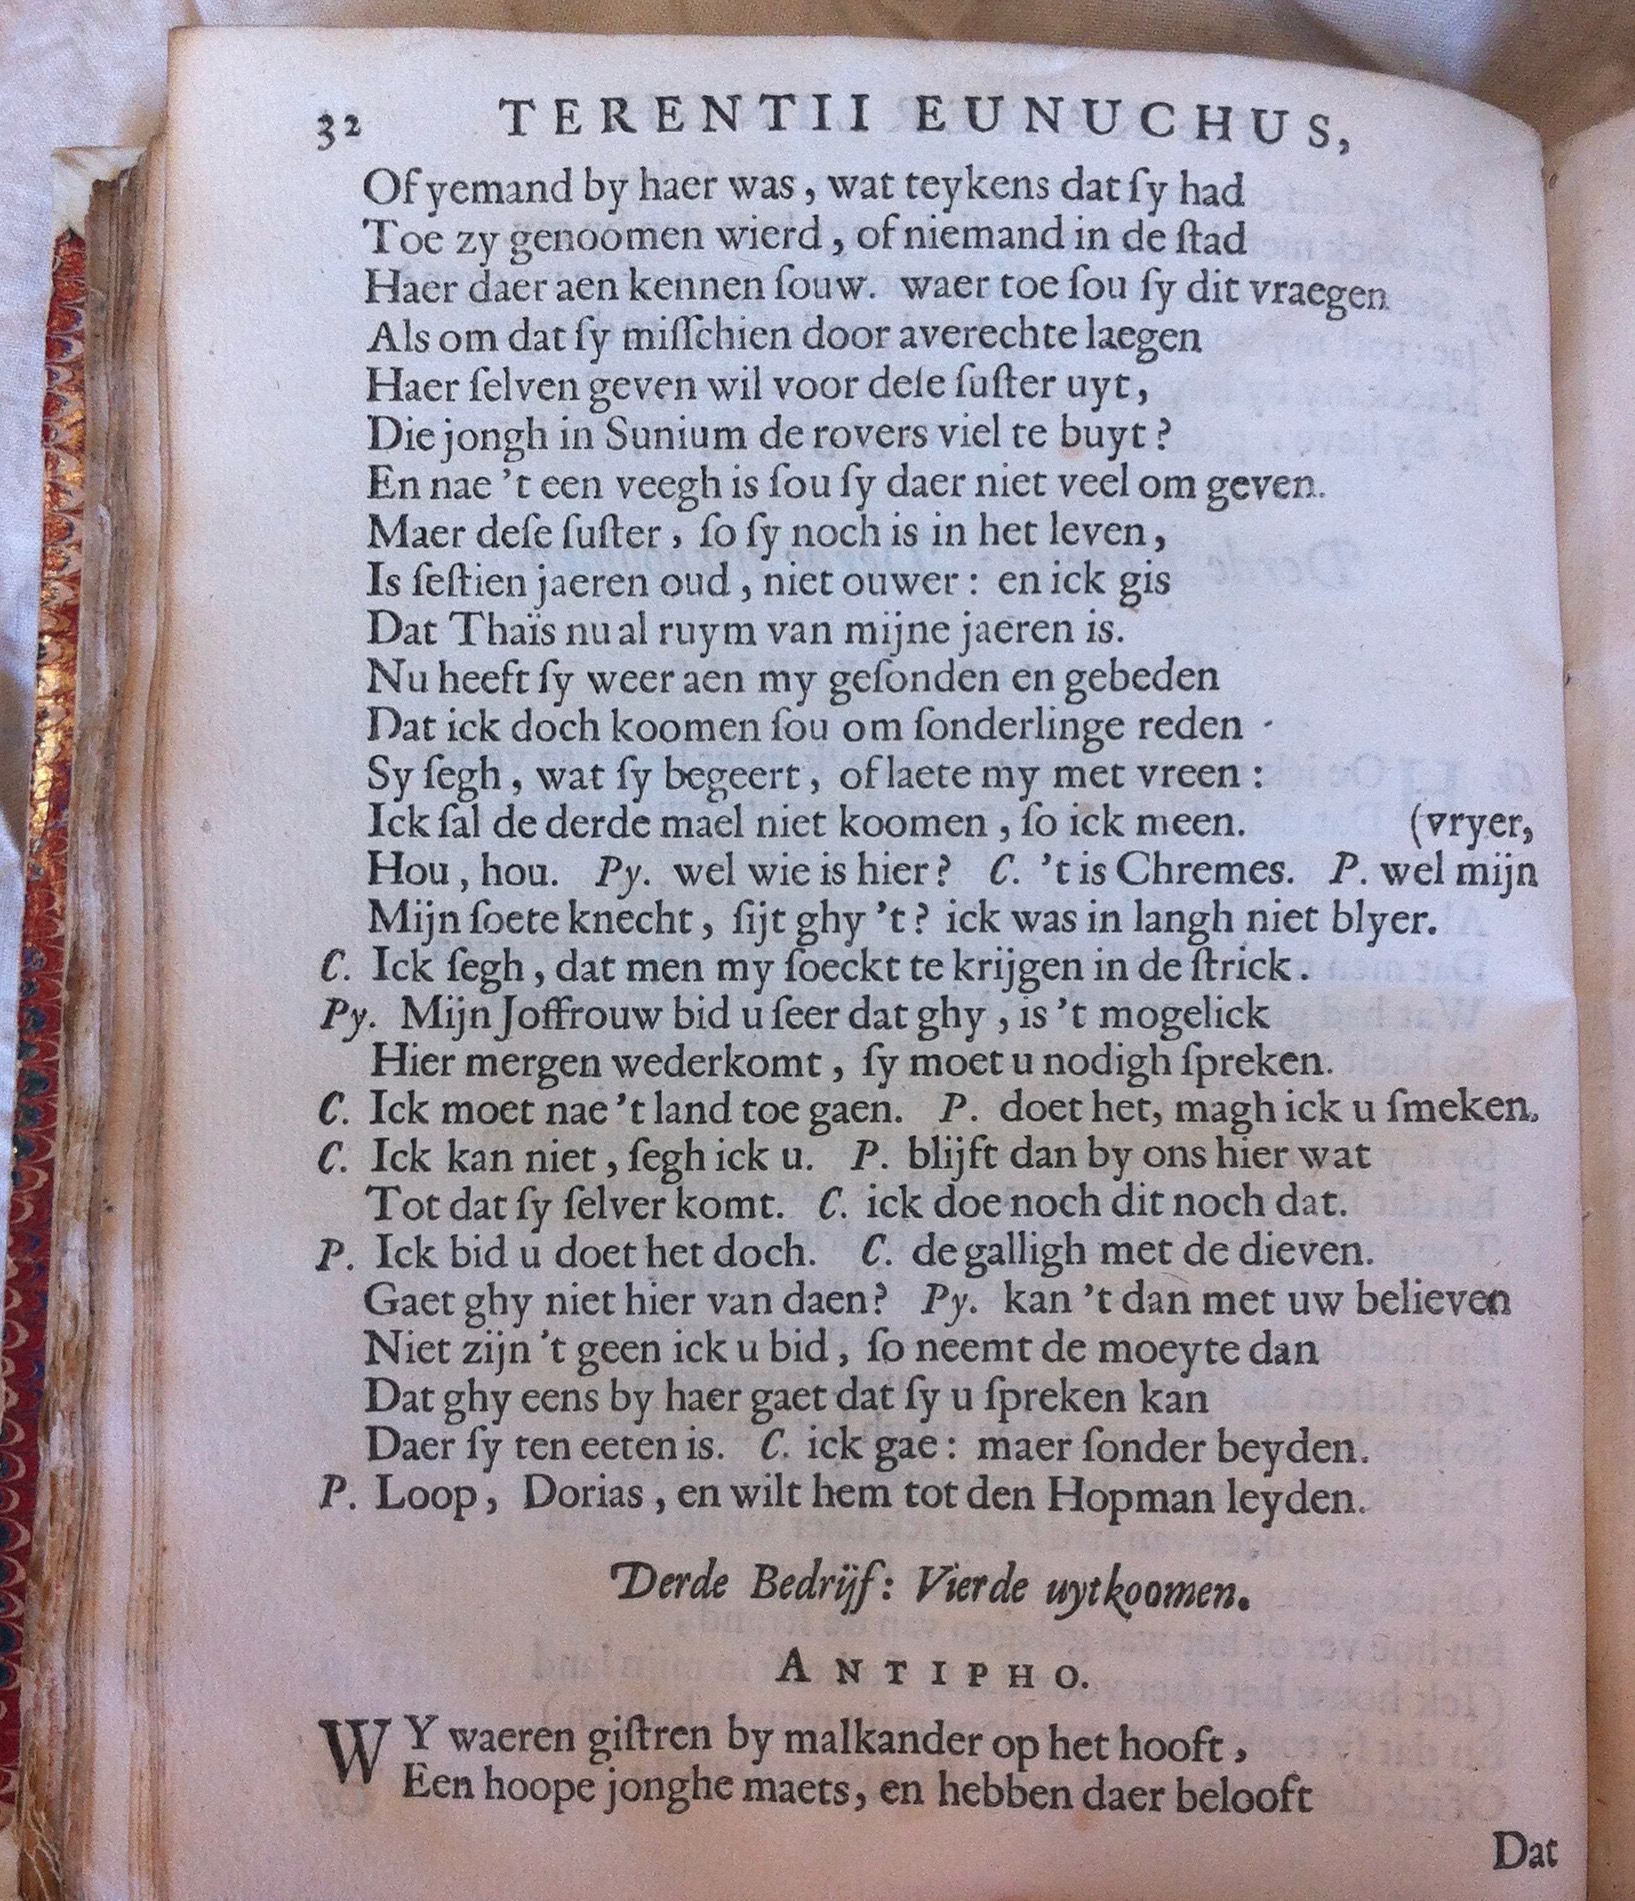 32 TERENTII EUNUCHUS,
Of yemand by haer was, wat teykens dat ſy had
Toe zy genoomen wierd, of niemand in de ſtad
Haer daer aen kennen ſouw. waer toe ſou ſy dit vraegen
Als om dat ſy miſſchien door averechte laegen
Haer ſelven geven wil voor deſe ſuſter uyt,
Die jongh in Sunium de rovers viel te buyt?
En nae 't een veegh is ſou ſy daer niet veel om geven.
Maer deſe ſuſter, ſo ſy noch is in het leven,
Is ſeſtien jaeren oud, niet ouwer: en ick gis
Dat Thaïs nu al ruym van mijne jaeren is.
Nu heeft ſy weer aen my geſonden en gebeden
Dat ick doch koomen ſou om ſonderlinge reden
Sy ſegh, wat ſy begeert, of laete my met vreen:
Ick ſal de derde mael niet koomen, ſo ick meen. (vryer,
Hou, hou. Py. wel wie is hier? C. 't is Chremes. P. wel mijn
Mijn ſoete knecht, ſijt ghy 't? ick was in langh niet blyer.
C. Ick ſegh, dat men my ſoeckt te krijgen in de ſtrick.
Py. Mijn Joffrouw bid u ſeer dat ghy, is 't mogelick
Hier mergen wederkomt, ſy moet u nodigh ſpreken.
C. Ick moet nae 't land toe gaen. P. doet het, magh ick u ſmeken,
C. Ick kan niet, ſegh ick u. P. blijft dan by ons hier wat
Tot dat ſy ſelver komt. C. ick doe noch dit noch dat.
P. Ick bid u doet het doch. C. de galligh met de dieven.
Gaet ghy niet hier van daen? Py. kan 't dan met uw believen
Niet zijn 't geen ick u bid, ſo neemt de moeyte dan
Dat ghy eens by haer gaet dat ſy u ſpreken kan
Daer ſy ten eeten is. C. ick gae: maer ſonder beyden.
P. Loop, Dorias, en wilt hem tot den Hopman leyden.
Derde Bedrijf: Vierde uytkoomen.
ANTIPHO.
WY waeren giſtren by malkander op het hooft,
Een hoope jonghe maets, en hebben daer belooft
Dat